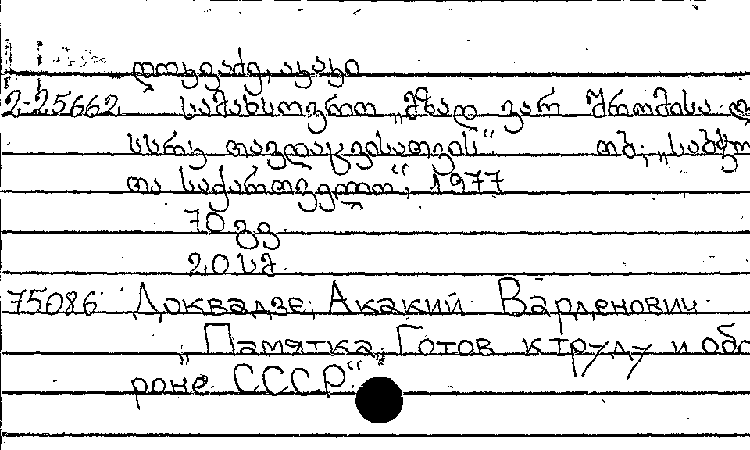 დოკვაძე, აკაკი
2-25662 სამახსოვრო „მზად ვარ შრომისა დ
სსრკ თავდაცვისათვის“. თბ., „საბჭო
თა საქართველო“, 1977
70 გვ
20 სმ
75086 Доквадзе, Акакий Варденович
„Памятка, Готов к труду и обо
роне СССР“